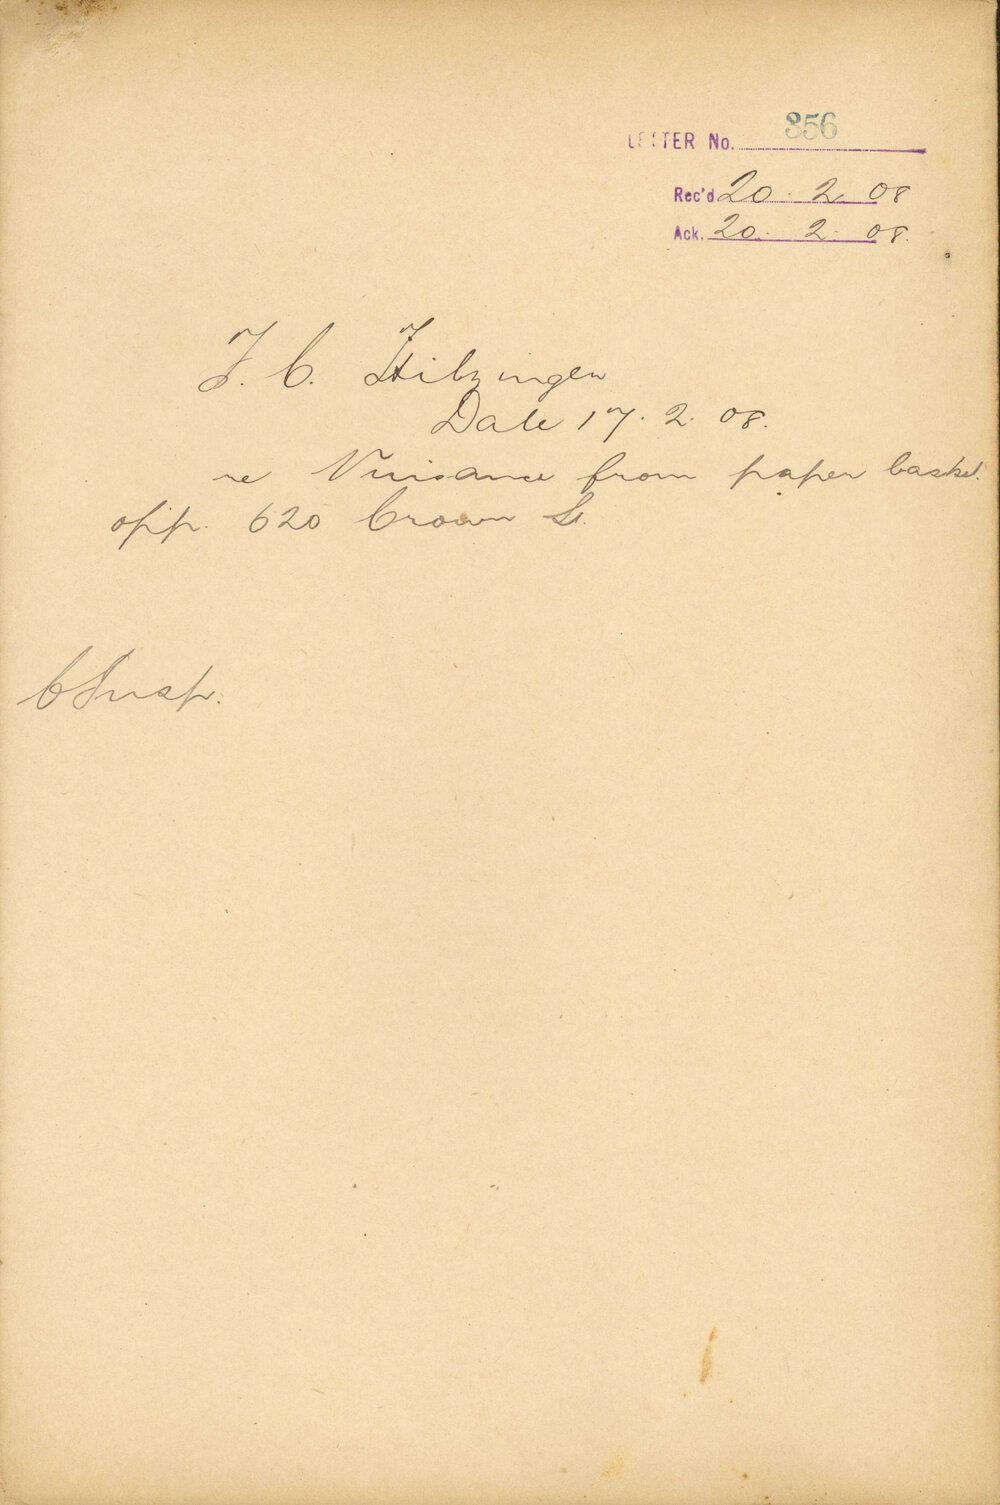 LETTER No. 356
Rec'd 20. 2. 08
Ack. 20. 2. 08.
F. C. Hitzinger
Date 17. 2. 08.
re Nuisance from paper basket.
opp. 620 Crown St.
C Insp.